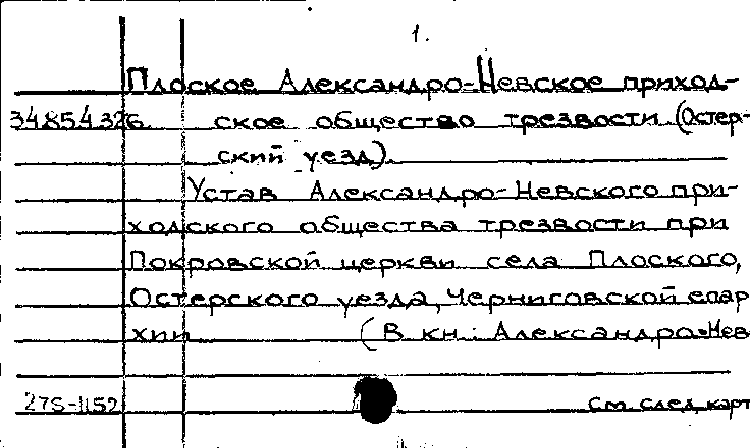 1.
Плоское Александро-Невское приход-
34854326 ское общество трезвости (Остер-
ский уезд).
Устав Александро-Невского при-
ходского общества трезвости при
Покровской церкви села Плоского,
Остерского уезда, Черниговской епар
хии (В кн.: Александро-Нев
27S-1152 См. след. карт